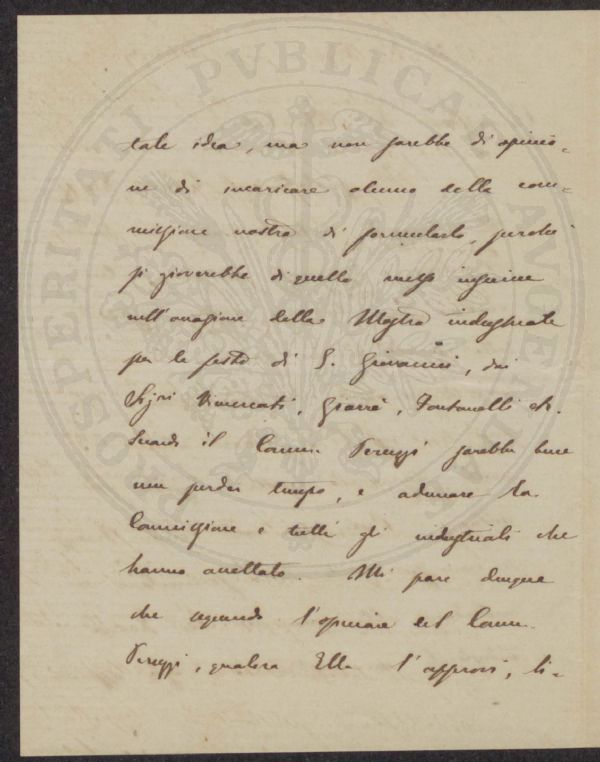 PROSPERITATI PVBLICAE AVGENDAE
tale idea, ma non sarebbe di opinio=
ne di incaricare alcuno della com=
missione nostra di formularlo, perché
si gioverebbe di quello messo insieme
nell'occasione della Mostra industriale
per le feste di S. Giovanni, dai
Sigri Vimercati, Giarrè, Fontanelli &.
Secondo il Comm. Peruzzi sarebbe bene
non perder tempo, e adunare la
Commissione e tutti gli industriali che
hanno accettato. Mi pare dunque
che seguendo l'opinione del Comm.
Peruzzi, qualora Ella l'approvi, si